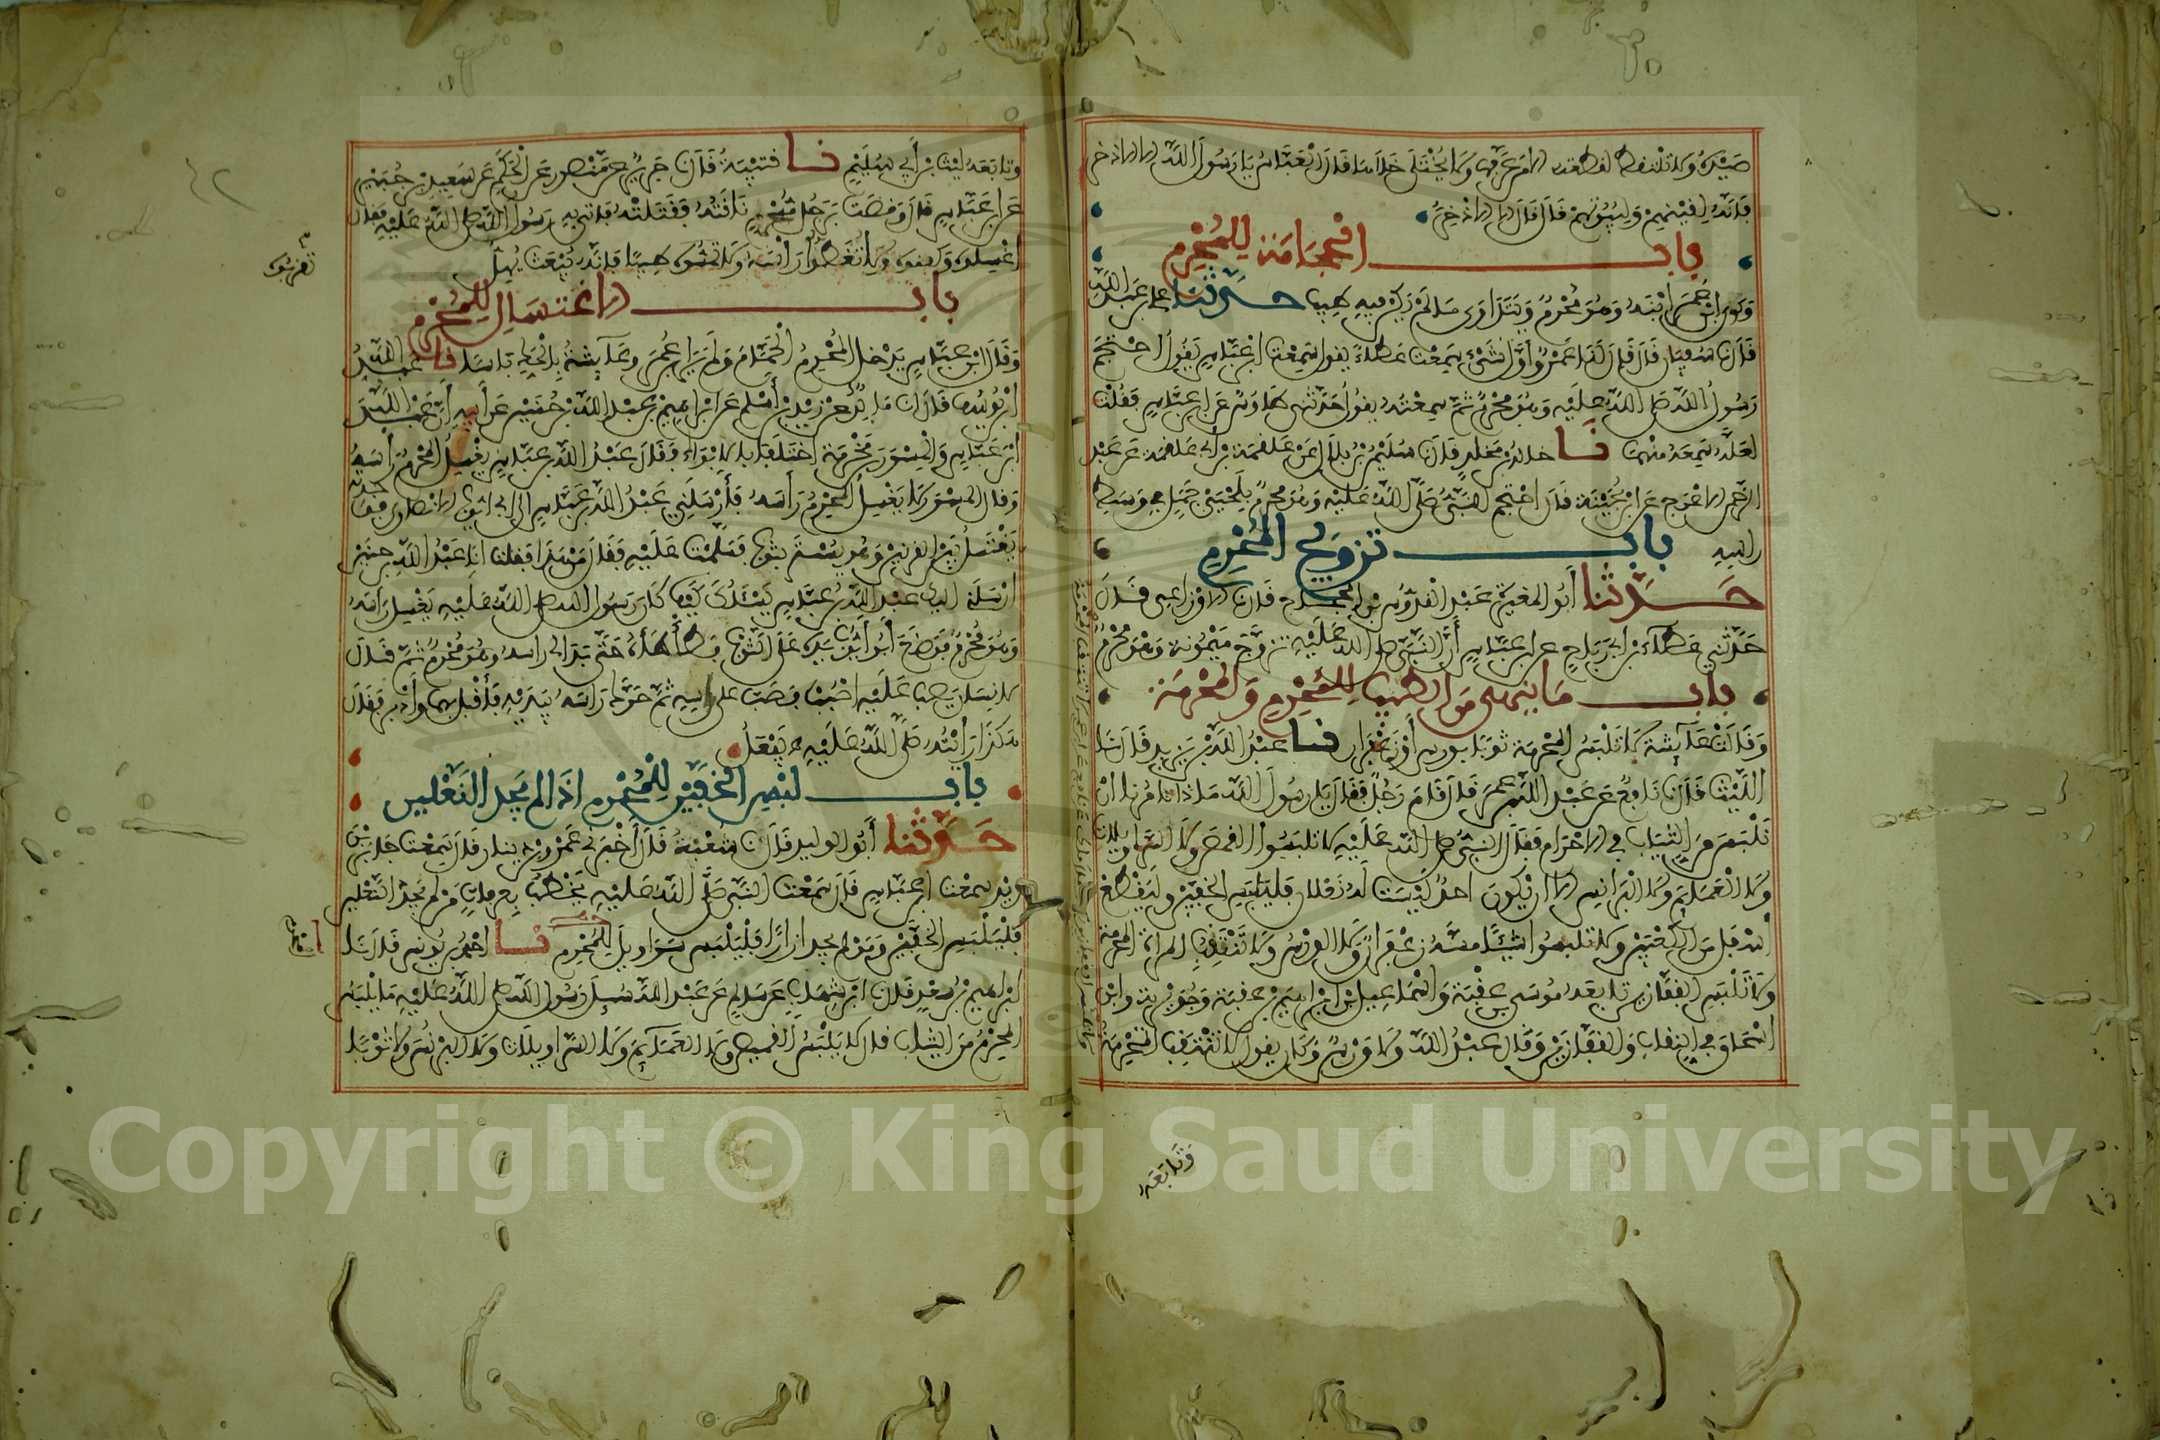 صيده ولا تلتقط لقطته الا من عرفها ولا يختلى خلاها قال ابن عباس يا رسول الله الا الاذخر
فانه لقينهم ولبيوتهم قال قال الا الاذخر
باب الحجامة للمحرم
وكوى ابن عمر ابنه وهو محرم ويتداوى ما لم يكن فيه طيب حدثنا علي بن عبد الله
قال نا سفيان قال قال لنا عمرو اول شيء سمعت عطاء يقول سمعت ابن عباس يقول احتجم
رسول الله صلى الله عليه وهو محرم ثم سمعته يقول حدثني طاوس عن ابن عباس فقلت
لعله سمعه منهما نا خالد بن مخلد قال نا سليمن بن بلال عن علقمة بن ابي علقمة عن عبد
الرحمن الاعرج عن ابن بحينة قال احتجم النبي صلى الله عليه وهو محرم بلحيي جمل في وسط
راسه
باب تزويج المحرم
حدثنا أبو المغيرة عبد القدوس بن الحجاج قال نا الاوزاعي قال
حدثني عطاء بن ابي رباح عن ابن عباس أن النبي صلى الله عليه تزوج ميمونة وهو محرم
باب ما ينهى من الطيب للمحرم والمحرمة
وقالت عائشة لا تلبس المحرمة ثوبا بورس أو زعفران نا عبد الله بن يزيد قال نا
الليث قال نا نافع عن عبد الله بن عمر قال قام رجل فقال يا رسول الله ماذا تامرنا ان
نلبس من الثياب في الاحرام فقال النبي صلى الله عليه لا تلبسوا القمص ولا السراويلات
ولا العمائم ولا البرانس الا ان يكون احد ليست له نعلان فليلبس الخفين وليقطع
اسفل من الكعبين ولا تلبسوا شيئا مسه زعفران ولا الورس ولا تنتقب المراة المحرمة
ولا تلبس القفازين تابعه موسى بن عقبة واسماعيل بن ابراهيم بن عقبة وجويرية وابن
اسحاق في النقاب والقفازين وقال عبيد الله ولا ورس وكان يقول لا تنتقب المحرمة
وتابعه
وتابعه ليث بن أبي سليم نا قتيبة قال نا جرير عن منصور عن الحكم عن سعيد بن جبير
عن ابن عباس قال وقصت برجل محرم ناقته فقتلته فاتي به رسول الله صلى الله عليه فقال
اغسلوه وكفنوه ولا تغطوا رأسه ولا تقربوه طيبا فانه يبعث يهل
تقربوه
باب الاغتسال للمحرم
وقال ابن عباس يدخل المحرم الحمام ولم ير ابن عمر وعائشة بالحك باسا نا عبد الله
بن يوسف قال انا مالك عن زيد بن أسلم عن ابراهيم بن عبد الله بن حنين عن أبيه أن عبد الله
بن عباس والمسور بن مخرمة اختلفا بالابواء فقال عبد الله بن عباس يغسل المحرم رأسه
وقال المسور لا يغسل المحرم رأسه فأرسلني عبد الله بن عباس الى ابي ايوب الانصاري فوجدته
يغتسل بين القرنين وهو يستر بثوب فسلمت عليه فقال من هذا فقلت انا عبد الله بن حنين
ارسلني اليك عبد الله بن عباس يسئلك كيف كان رسول الله صلى الله عليه يغسل رأسه
وهو محرم فوضع أبو أيوب يده على الثوب فطأطأه حتى بدا لي راسه وهو محرم ثم قال
لانسان يصب عليه اصبب فصب على راسه ثم حرك راسه بيديه فأقبل بهما وأدبر فقال
هكذا رأيته صلى الله عليه يفعل
باب لبس الخفين للمحرم اذا لم يجد النعلين
حدثنا أبو الوليد قال نا شعبة قال أخبرني عمرو بن دينار قال سمعت جابر بن
زيد سمعت ابن عباس قال سمعت النبي صلى الله عليه يخطب بعرفات من لم يجد النعلين
فليلبس الخفين ومن لم يجد ازارا فليلبس سراويل للمحرم نا احمد بن يونس قال نا
ابراهيم بن سعد قال نا ابن شهاب عن سالم عن عبد الله سئل رسول الله صلى الله عليه ما يلبس
المحرم من الثياب قال لا يلبس القميص ولا العمائم ولا السراويلات ولا البرنس ولا ثوبا
Copyright © King Saud University